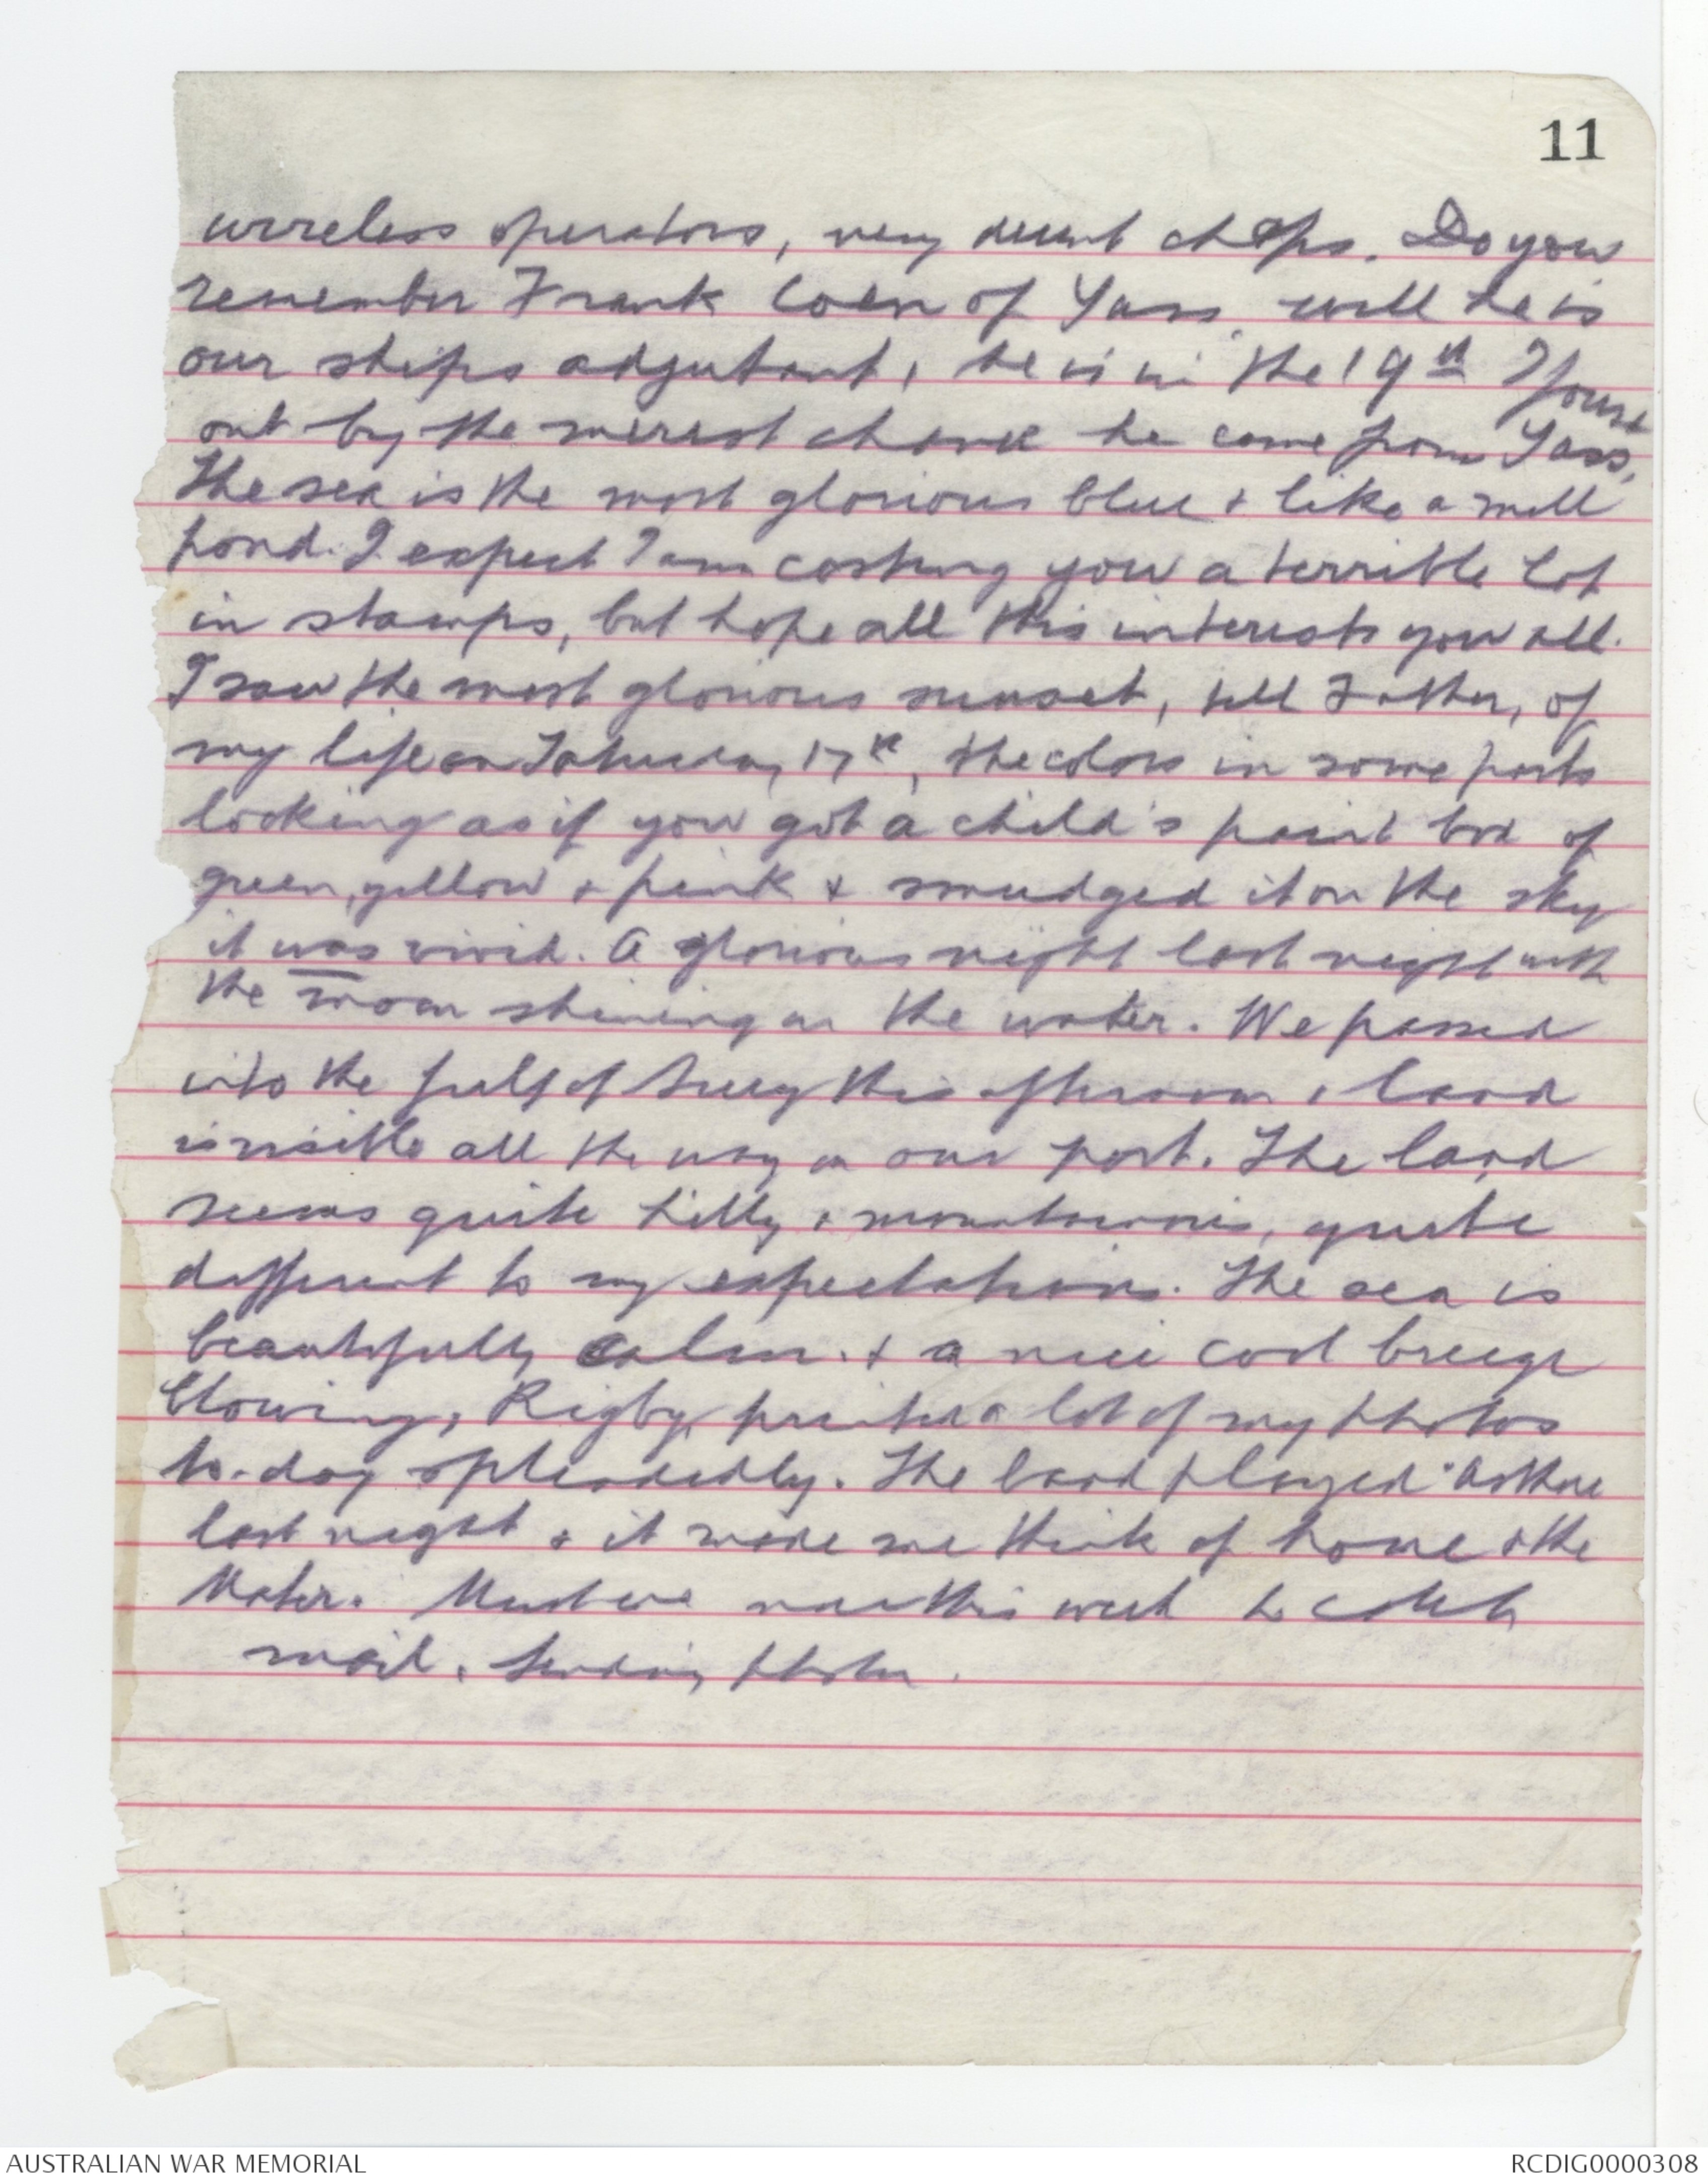 11
wireless operators, very decent chaps. Do you
remember Frank Coen of Yass, well he is
our ships adjutant, he is in the 19th I found
out by the merest chance he came from Yass,
The sea is the most glorious blue & like a mill
pond. I expect I am costing you a terrible lot
in stamps, but hope all this interests you all.
I saw the most glorious sunset, tell Father, of
my life on Saturday 17th, the colors in some parts
looking as if you got a child's paint box of
green, yellow & pink & smudged it on the sky
it was vivid. A glorious night last night with
the moon shining on the water. We passed
into the gulf of Suez this afternoon & land
is visible all the way on our port. The land
seems quite hilly & mountainous, quite
different to my expectations. The sea is
beautifully calm & a nice cool breeze
blowing, Rigby printed a lot of my photos
to-day splendidly. The band played
last night & it made me think of home & the
Mater. Must end now this week to catch
mail, Sending photos.
AUSTRALIAN WAR MEMORIAL
RCDIG0000308